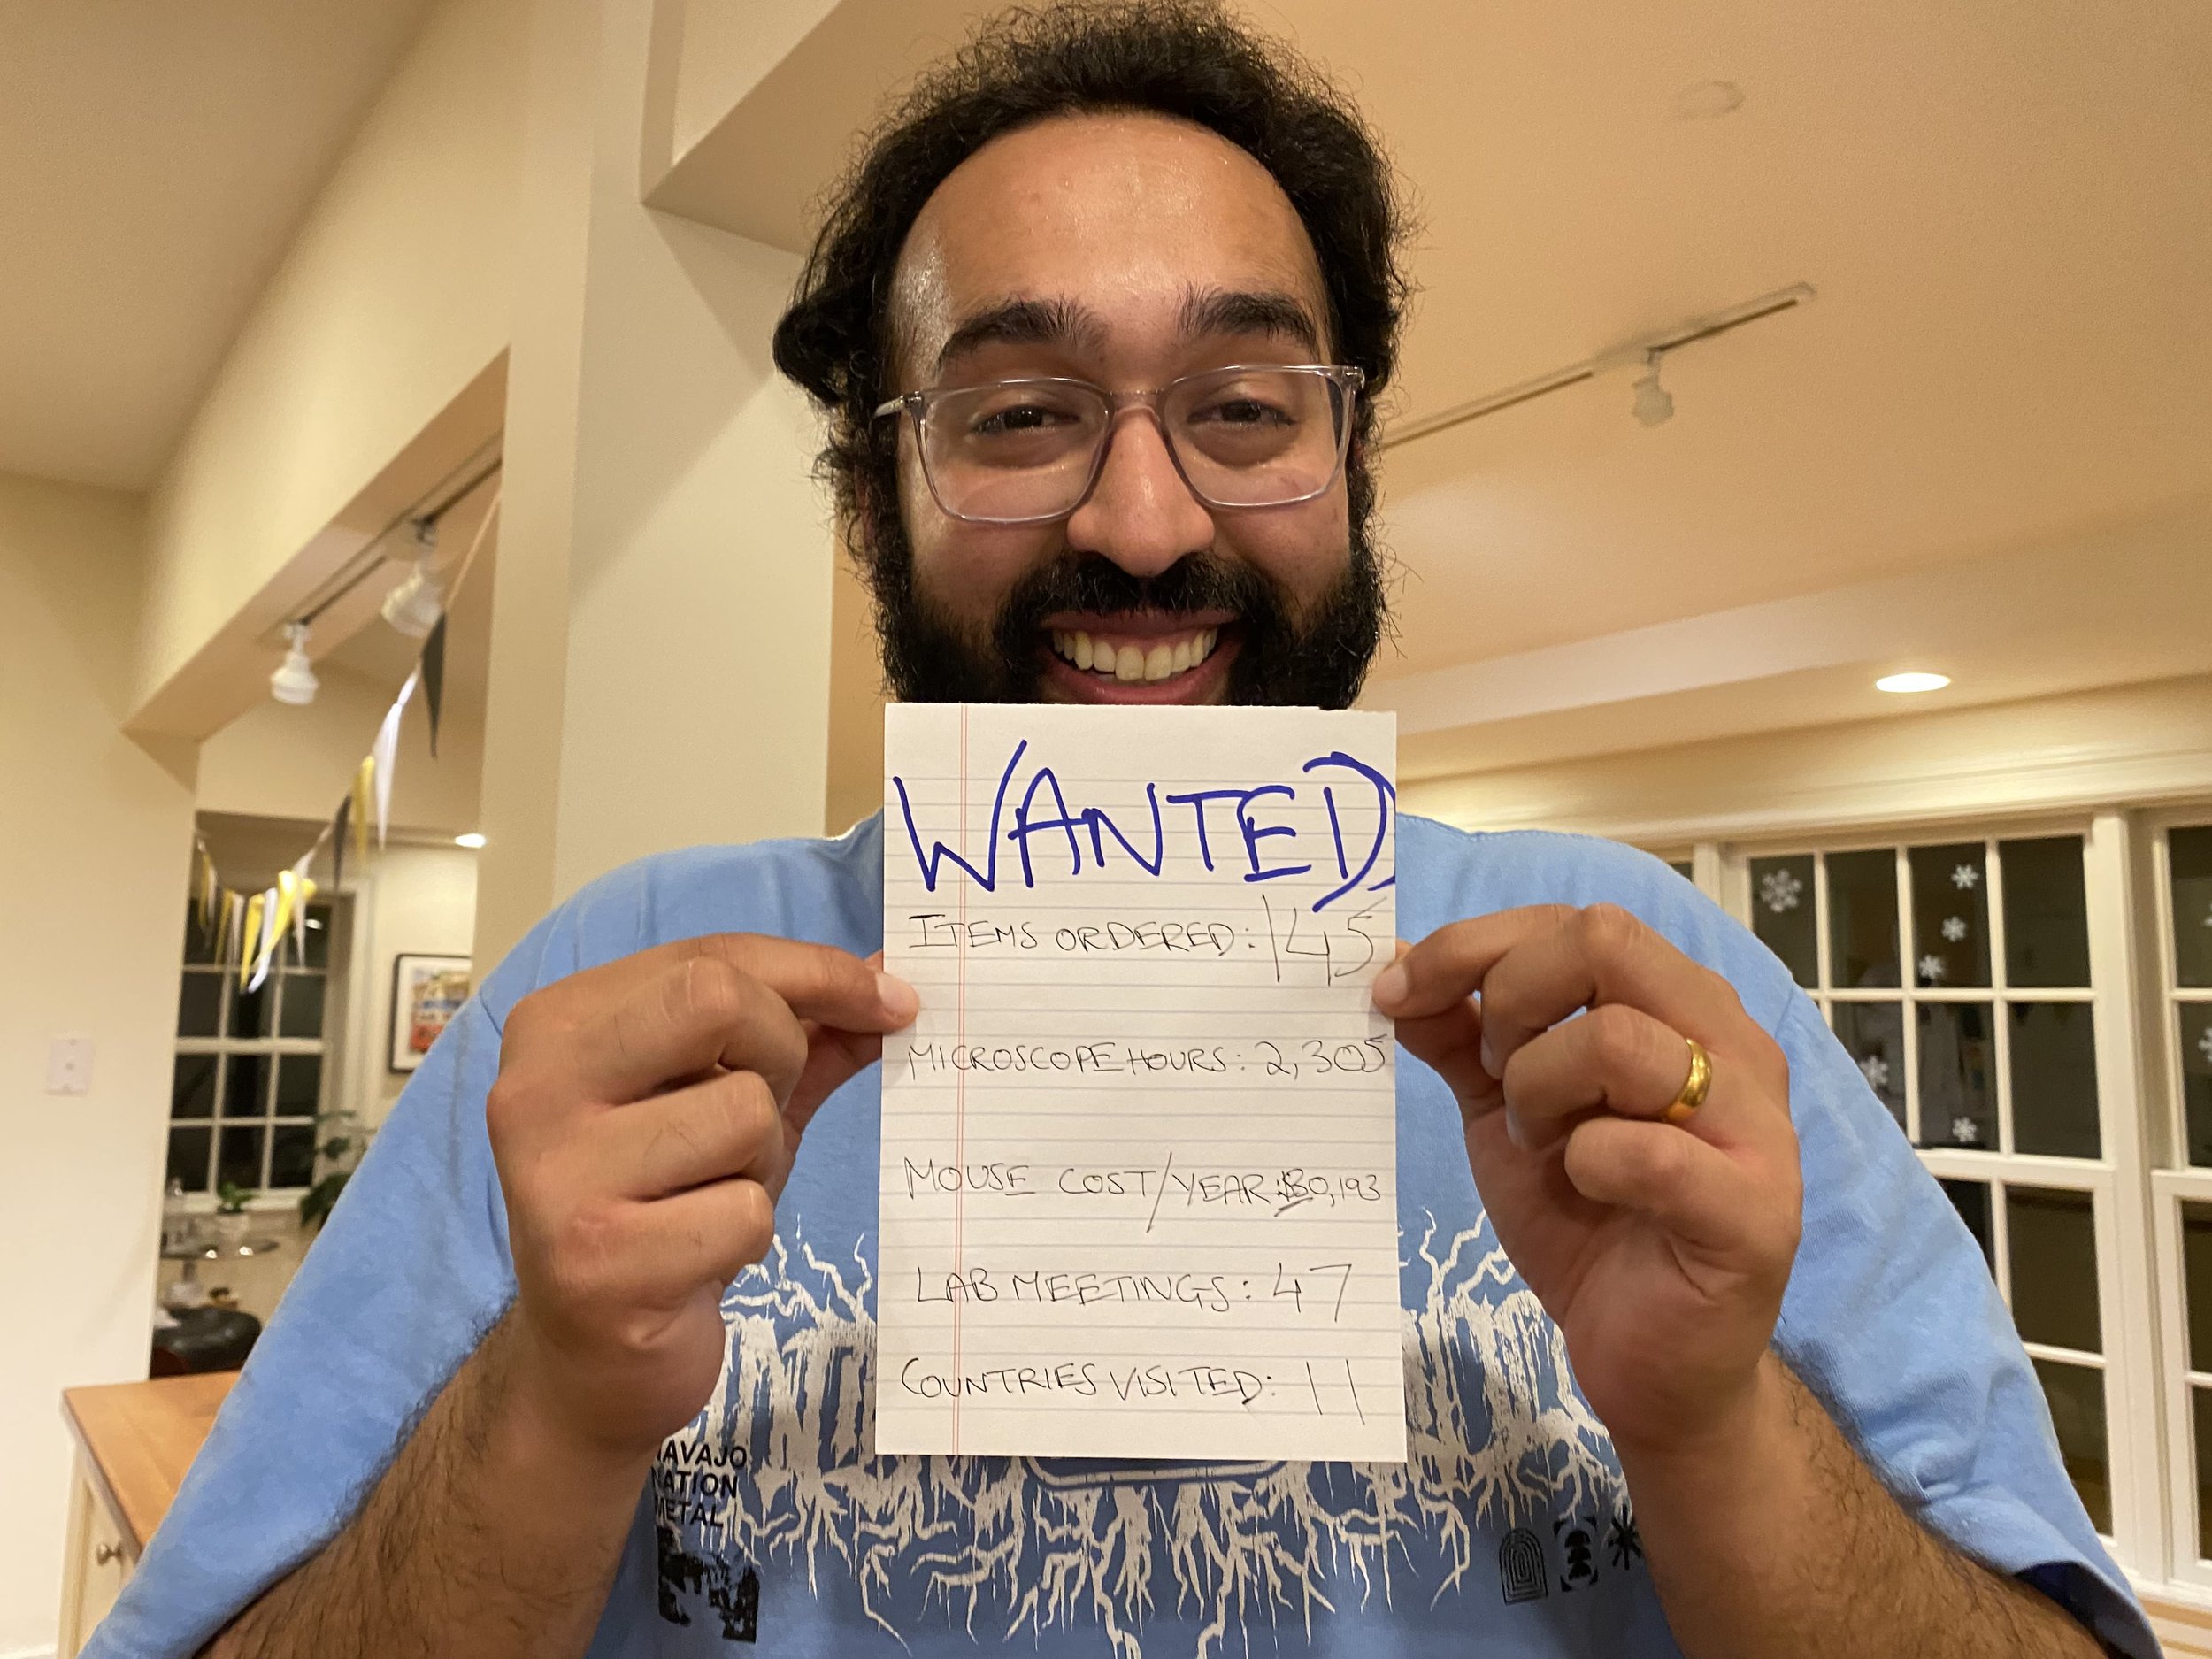 WANTED
ITEMS ORDERED: 145
MICROSCOPE HOURS: 2,305
MOUSE COST/YEAR: $30,193
LAB MEETINGS: 47
COUNTRIES VISITED: 11
NAVAJO
NATION
METAL